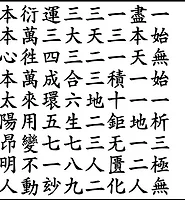 一始無始一析三極無
盡本天一一地一二人
一三一積十鉅无匱化
三天二三地二三人二
三大三合六生七八九
運三四成環五七一玅
衍萬徃萬來用變不動
本本心本太陽昂明人